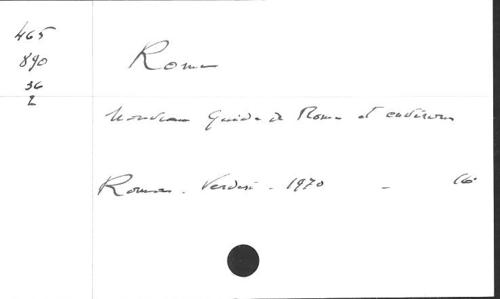 465
890
36
2
Rome
Nouveau Guide de Rome et environs
Roma - Verdesi - 1970 - 16°